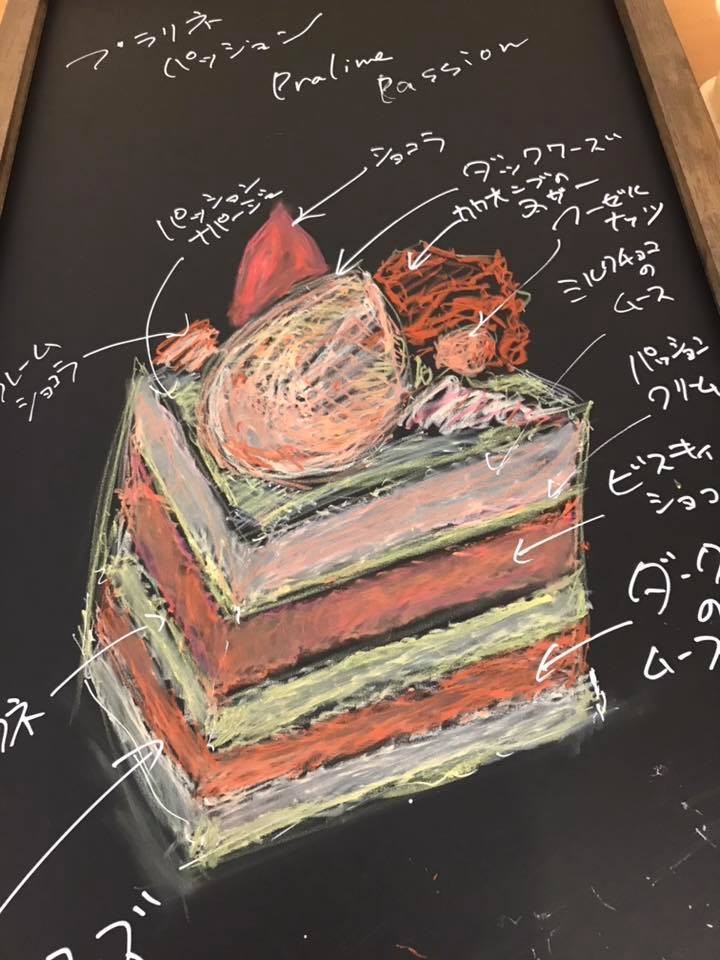 プラリネ
パッション
Praline
Passion
ショコラ
パッション
ナパージュ
ダックワーズ
カカオニブの
ヌガー
ノーゼル
ナッツ
ミルクチョコ
の
ムース
パッション
クリーム
ビスキィ
ショコ
ダーク
の
ムース
レーム
ショコラ
ネ
ズ